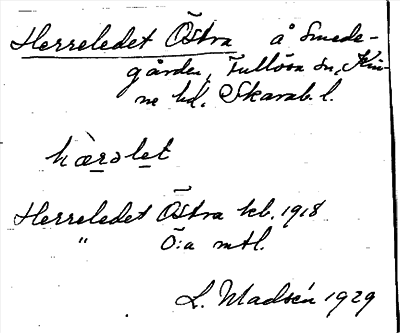 Herreledet Östra å Smede-
gården, Fullösa sn, Kin-
ne hd, Skarab. l.
hæ̀rəlet
Herreledet Östra kb. 1918
" Ö:a mtl.
L. Madsén 1929